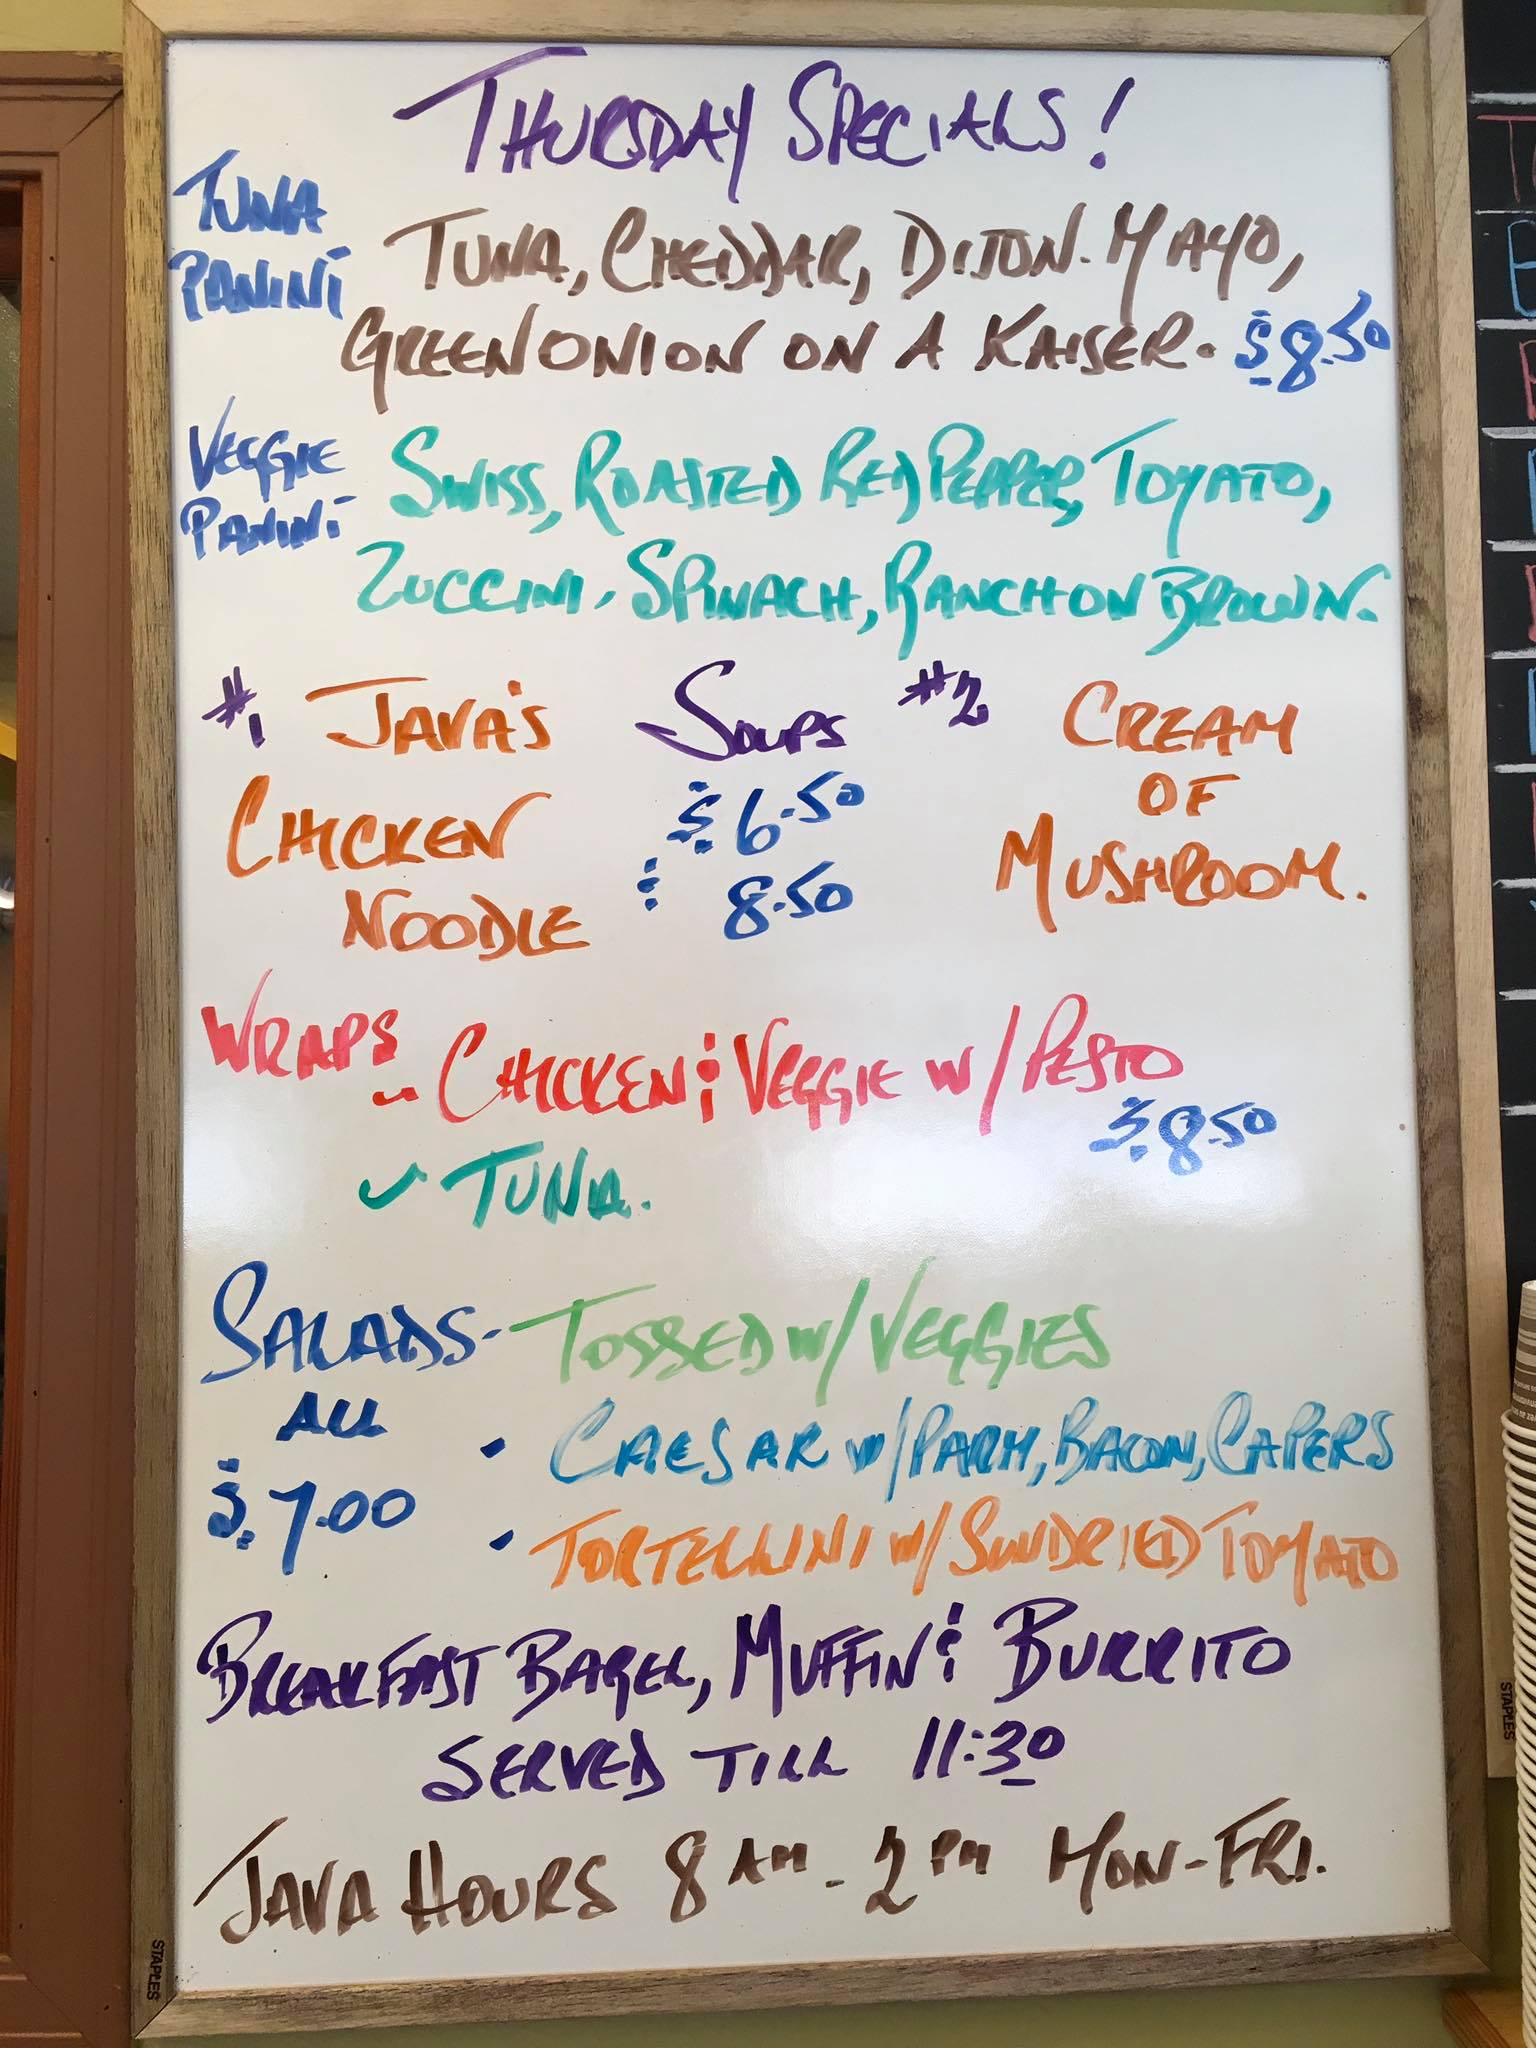 THURSDAY SPECIALS!
TUNA
PANINI
TUNA, CHEDDAR, DIJON. MAYO,
GREEN ONION ON A KAISER. $8.50
VEGGIE
PANINI
SWISS, ROASTED RED PEPPER, TOMATO,
ZUCCINI, SPINACH, RANCH ON BROWN.
#1 JAVA'S
CHICKEN
NOODLE
SOUPS
$6.50
& 8.50
#2 CREAM
OF
MUSHROOM.
WRAPS
- CHICKEN & VEGGIE W/ PESTO
$8.50
✓ TUNA.
SALADS - TOSSED W/ VEGGIES
ALL
$7.00
• CAESAR W/ PARM, BACON, CAPERS
• TORTELLINI W/ SUNDRIED TOMATO
BREAKFAST BAGEL, MUFFIN & BURRITO
SERVED TILL 11:30
JAVA HOURS 8 AM - 2 PM MON-FRI.
STAPLES
STAPLES